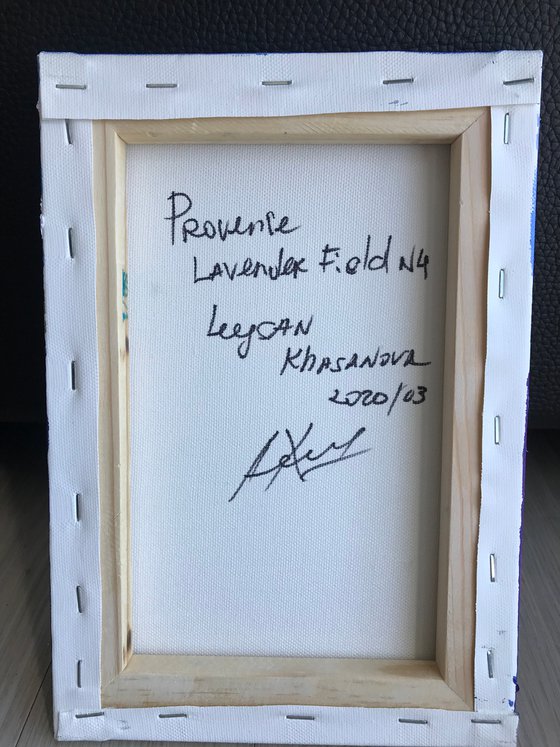 Provense
Lavender Field N4
Leysan
Khasanova
2020/03